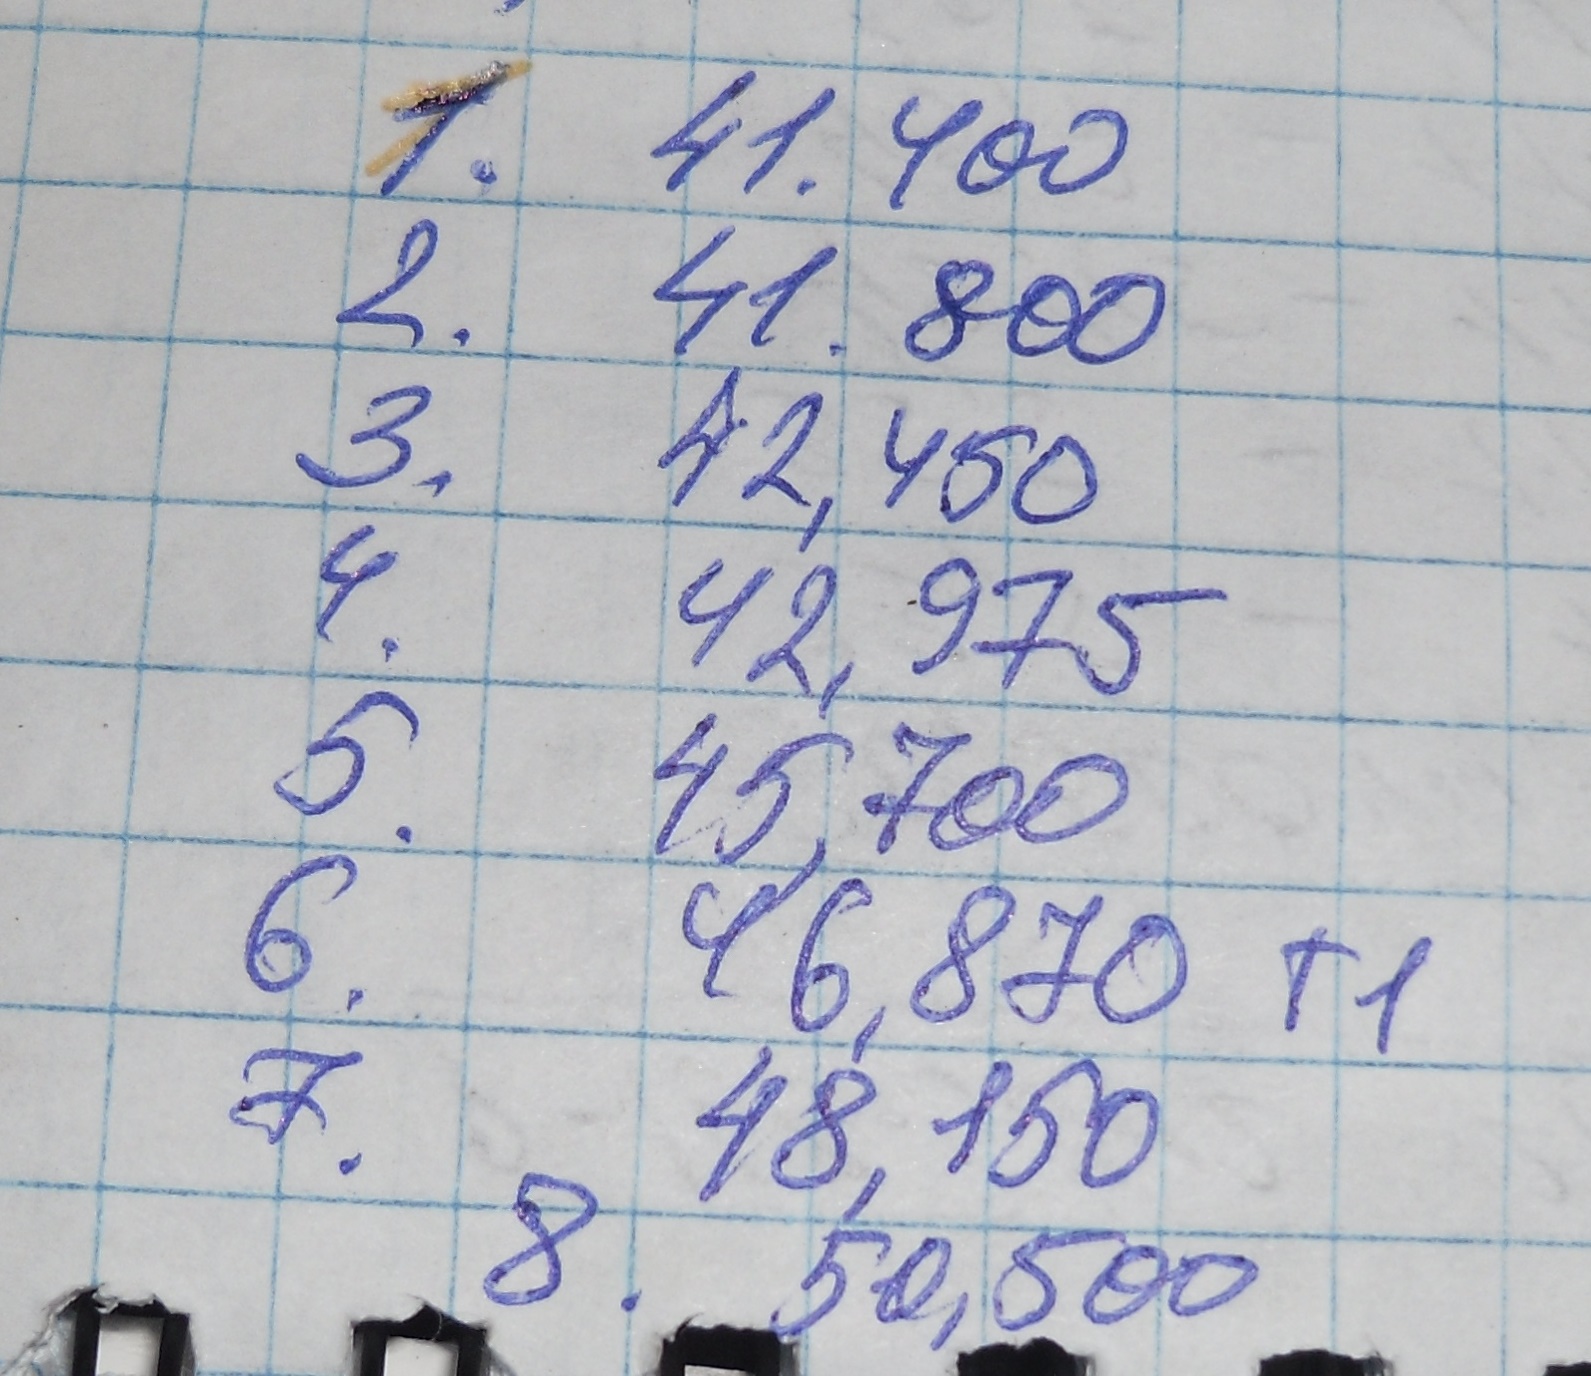 1. 41.400
2. 41.800
3. 42,450
4. 42,975
5. 45,700
6. 46,870 +1
7. 48,150
8. 50,500